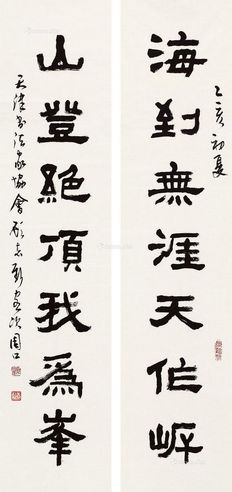 乙亥初夏
海到無涯天作岸
山登絕頂我為峯
天津書法家協會顧志新書於周口